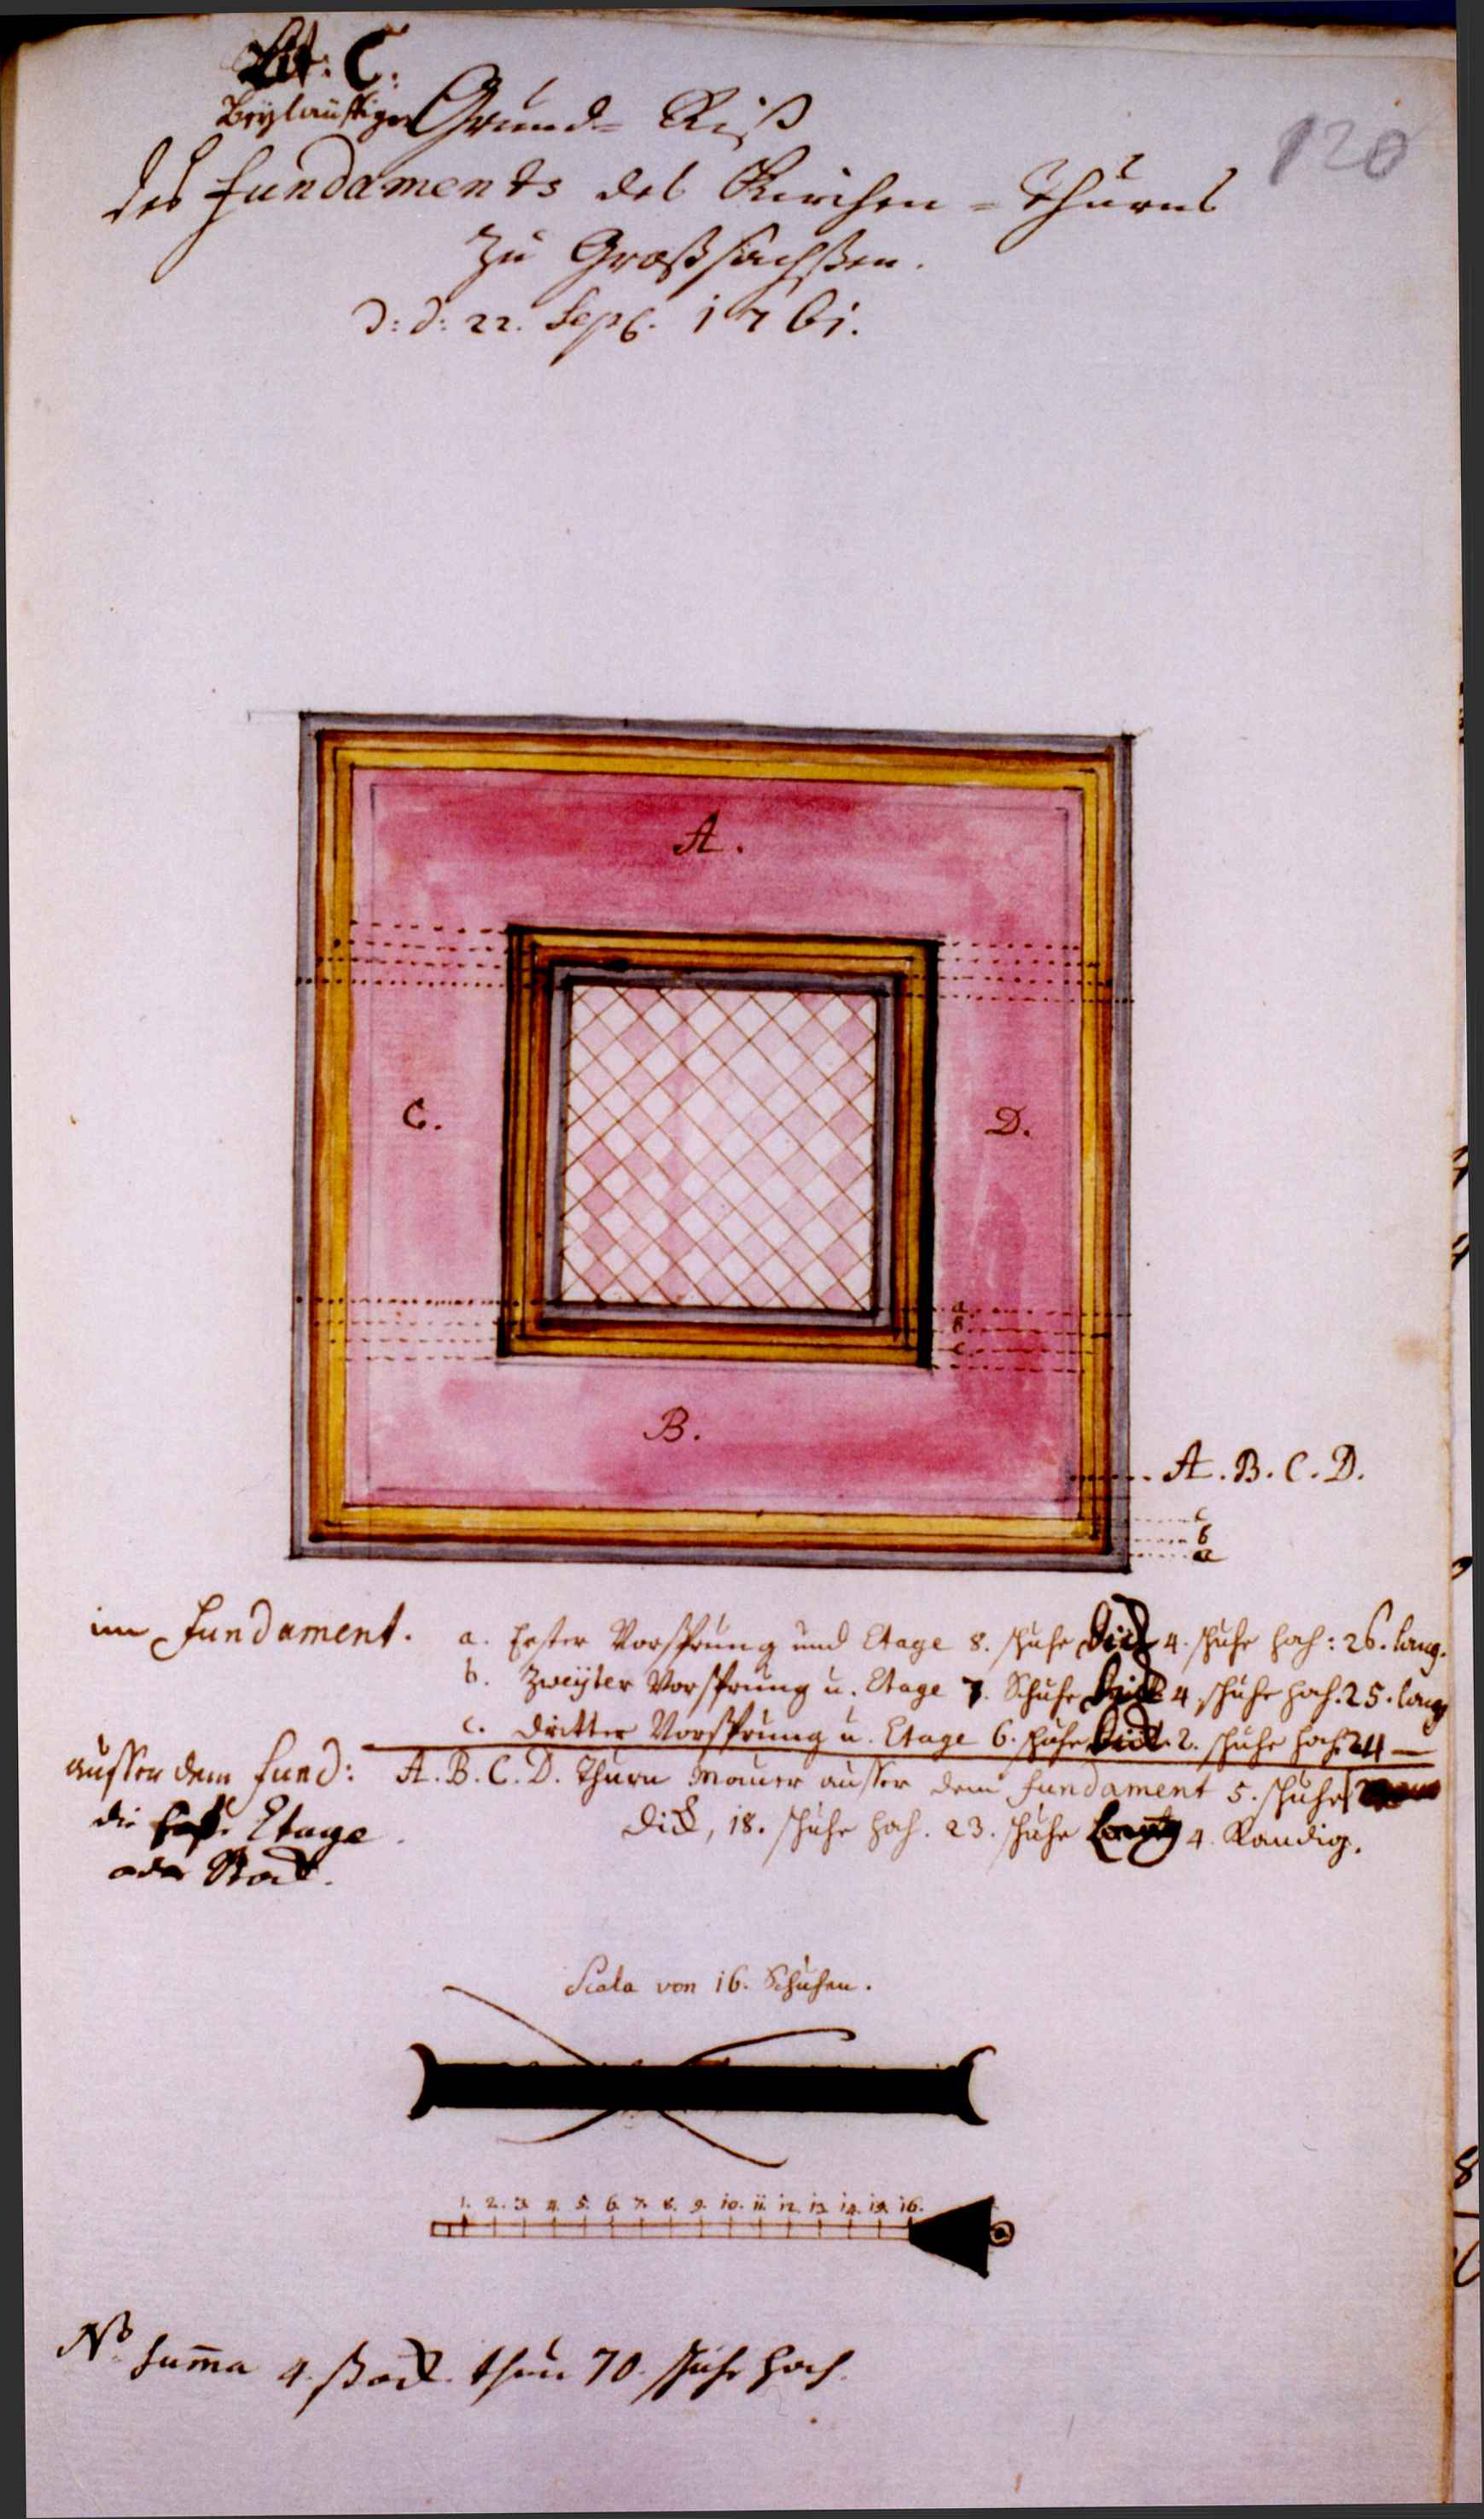 Lit: C.
120
Beyläuffiger Grund= Riß
des Fundaments des Kirchen = Thurns
zu Großsachßen.
D: d: 22. Sept. 1761.
A.
C.
D.
a.
b.
c.
B.
A. B. C. D.
c
b
a
im Fundament. a. Erster Vorsprung und Etage 8. schuhe dick 4. schuhe hoch: 26. lang.
b. Zweyter Vorsprung u. Etage 7. Schuhe dick 4 schuhe hoch. 25. lang
c. Dritter Vorsprung u. Etage 6. schuhe dick. 2. schuhe hoch. 24 —
ausser dem Fund: A. B. C. D. Thurn Mauer ausser dem Fundament 5. schuhe
die Etage dick, 18. schuhe hoch. 23. schuhe Lang 4. Kandig.
oder Stock.
Scala von 16. Schuhen.
1. 2. 3. 4. 5. 6. 7. 8. 9. 10. 11. 12. 13. 14. 15. 16.
NB Sum̄a 4. Stock thun 70. Schuhe hoch.